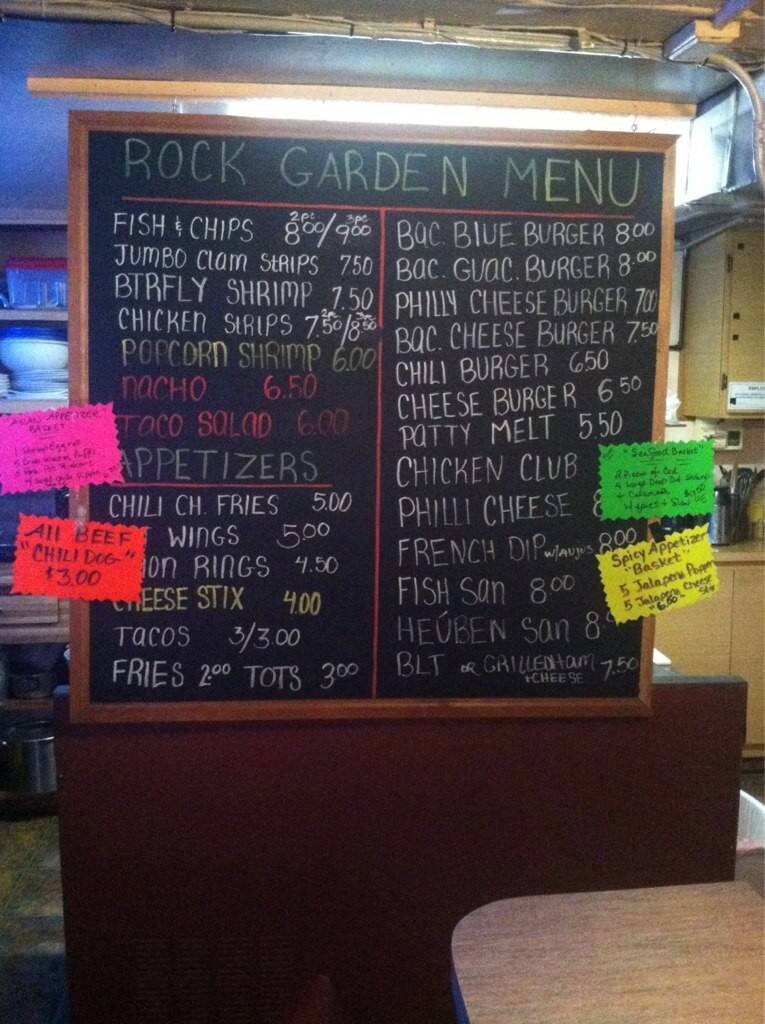 ROCK GARDEN MENU
FISH & CHIPS 2pc 8.00/3pc 9.00
JUMBO CLAM STRIPS 7.50
BTRFLY SHRIMP 7.50
CHICKEN STRIPS 2pc 7.50/3pc 8.50
POPCORN SHRIMP 6.00
NACHO 6.50
TACO SALAD 6.00
APPETIZERS
CHILI CH. FRIES 5.00
WINGS 5.00
ION RINGS 4.50
CHEESE STIX 4.00
TACOS 3/3.00
FRIES 2.00 TOTS 3.00
BAC. BLUE BURGER 8.00
BAC. GUAC. BURGER 8.00
PHILLY CHEESE BURGER 7.00
BAC. CHEESE BURGER 7.50
CHILI BURGER 6.50
CHEESE BURGER 6.50
PATTY MELT 5.50
CHICKEN CLUB
PHILLI CHEESE 8
FRENCH DIP W/AUJUS 8.00
FISH SAN 8.00
HEÚBEN SAN 8.0
BLT OR GRILLED HAM 7.50
+CHEESE
ASIAN APPETIZER
BASKET
All BEEF
"CHILI DOG"
$3.00
"Seafood Basket"
2 Pieces of Cod
Spicy Appetizer
"Basket"
5 Jalapeno Poppers
5 Jalapeno Cheese
"6.50"